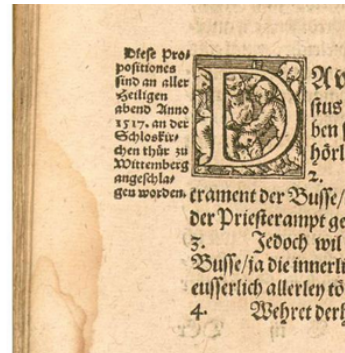 Diese Pro⸗
positiones
sind an aller
Heiligen
abend Anno
1517. an der
Schloskir⸗
chen thür zu
Wittemberg
angeschla⸗
gen worden.
D
stus
ben
hörl
2.
crament der Busse/
der Priesterampt ge
3. Jedoch wil
Busse/ja die innerli
eusserlich allerley tö
4. Wehret derh